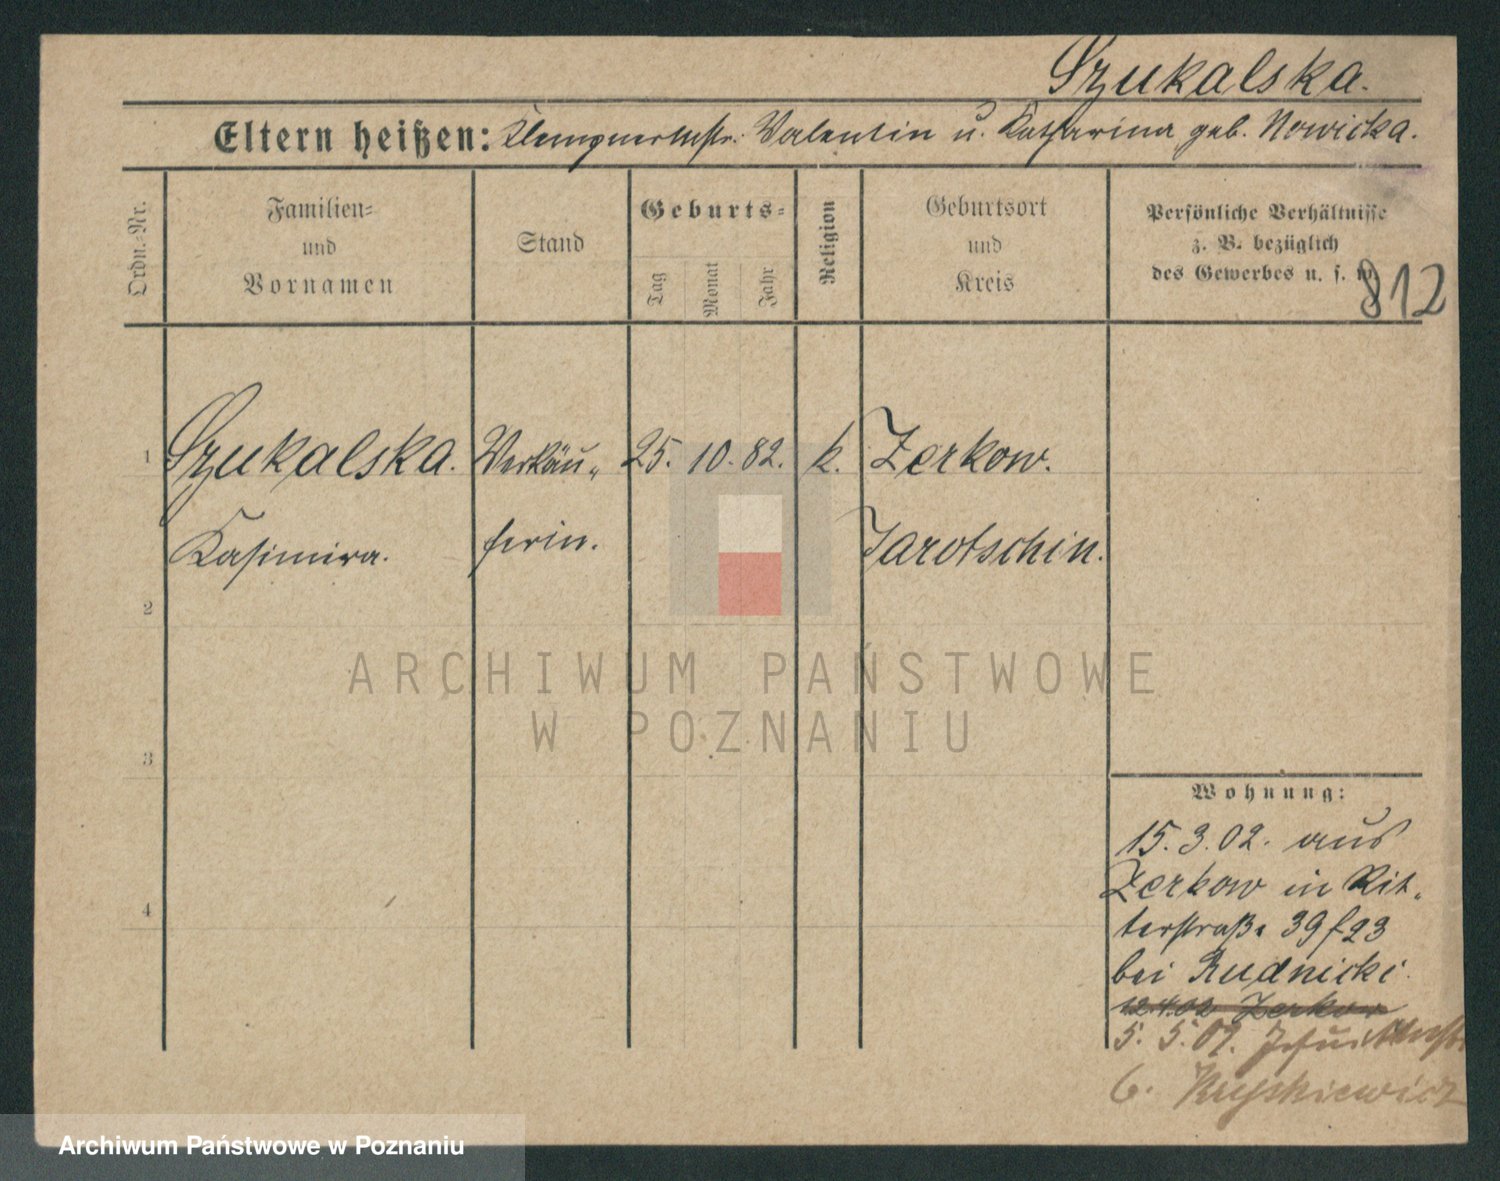 Szukalska.
Eltern heißen: Klempnermstr. Valentin u. Katharina geb. Nowicka.
Ordn.-Nr.
Familien-
und
Vornamen
Stand
Geburts-
Tag
Monat
Jahr
Religion
Geburtsort
und
Kreis
Persönliche Verhältnisse
z. B. bezüglich
des Gewerbes u. s. w.
812
1 Szukalska. Verkäu- 25. 10. 82. k. Zerkow.
Kasimira. ferin. Jarotschin.
2
ARCHIWUM PAŃSTWOWE
W POZNANIU
3
Wohnung:
15. 3. 02. aus
Zerkow in Rit-
4
terstraße 39 f 23
bei Rudnicki.
12.4.02 Zerkow
5. 5. 02.
Archiwum Państwowe w Poznaniu